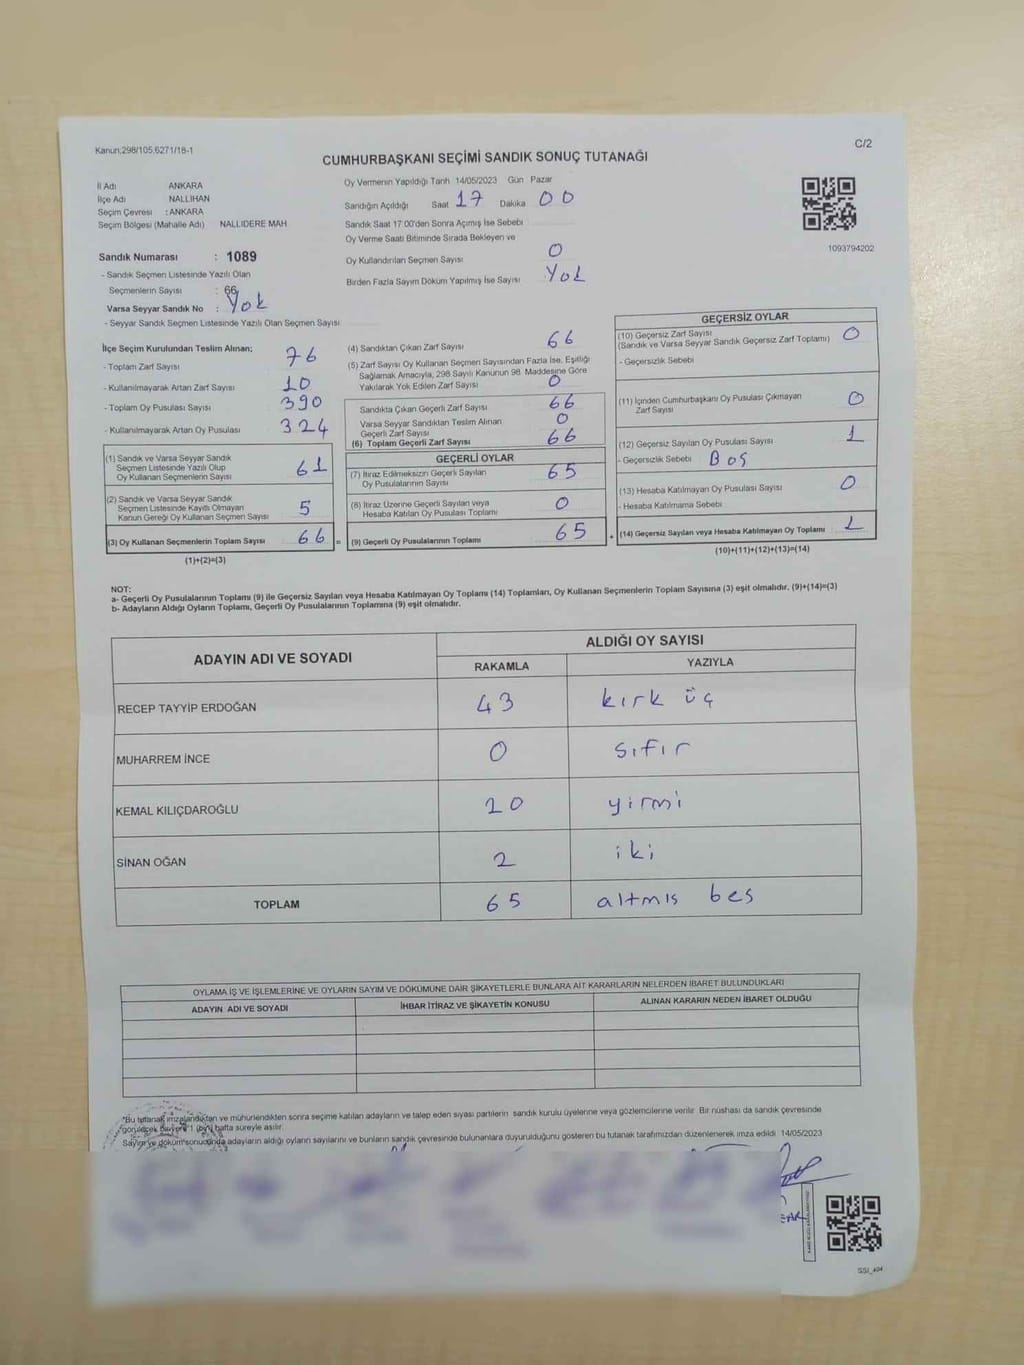 Kanun;298/105.6271/18-1
C/2
CUMHURBAŞKANI SEÇİMİ SANDIK SONUÇ TUTANAĞI
İl Adı ANKARA
İlçe Adı NALLIHAN
Seçim Çevresi : ANKARA
Seçim Bölgesi (Mahalle Adı) NALLIDERE MAH
Sandık Numarası : 1089
- Sandık Seçmen Listesinde Yazılı Olan
Seçmenlerin Sayısı : 66
Varsa Seyyar Sandık No : Yok
- Seyyar Sandık Seçmen Listesinde Yazılı Olan Seçmen Sayısı
Oy Vermenin Yapıldığı Tarih 14/05/2023 Gün Pazar
Sandığın Açıldığı Saat 17 Dakika 00
Sandık Saat 17:00'den Sonra Açılmış İse Sebebi
Oy Verme Saati Bitiminde Sırada Bekleyen ve
Oy Kullandırılan Seçmen Sayısı 0
Birden Fazla Sayım Döküm Yapılmış İse Sayısı Yok
1093794202
İlçe Seçim Kurulundan Teslim Alınan;
- Toplam Zarf Sayısı 76
- Kullanılmayarak Artan Zarf Sayısı 10
- Toplam Oy Pusulası Sayısı 390
- Kullanılmayarak Artan Oy Pusulası 324
(1) Sandık ve Varsa Seyyar Sandık
Seçmen Listesinde Yazılı Olup
Oy Kullanan Seçmenlerin Sayısı 61
(2) Sandık ve Varsa Seyyar Sandık
Seçmen Listesinde Kayıtlı Olmayan
Kanun Gereği Oy Kullanan Seçmen Sayısı 5
(3) Oy Kullanan Seçmenlerin Toplam Sayısı 66 =
(1)+(2)=(3)
(4) Sandıktan Çıkan Zarf Sayısı 66
(5) Zarf Sayısı Oy Kullanan Seçmen Sayısından Fazla İse, Eşitliği
Sağlamak Amacıyla, 298 Sayılı Kanunun 98. Maddesine Göre
Yakılarak Yok Edilen Zarf Sayısı 0
Sandıkta Çıkan Geçerli Zarf Sayısı 66
Varsa Seyyar Sandıktan Teslim Alınan
Geçerli Zarf Sayısı 0
(6) Toplam Geçerli Zarf Sayısı 66
GEÇERLİ OYLAR
(7) İtiraz Edilmeksizin Geçerli Sayılan
Oy Pusulalarının Sayısı 65
(8) İtiraz Üzerine Geçerli Sayılan veya
Hesaba Katılan Oy Pusulası Toplamı 0
(9) Geçerli Oy Pusulalarının Toplamı 65 +
GEÇERSİZ OYLAR
(10) Geçersiz Zarf Sayısı 0
(Sandık ve Varsa Seyyar Sandık Geçersiz Zarf Toplamı)
- Geçersizlik Sebebi
(11) İçinden Cumhurbaşkanı Oy Pusulası Çıkmayan
Zarf Sayısı 0
(12) Geçersiz Sayılan Oy Pusulası Sayısı 1
- Geçersizlik Sebebi Boş
(13) Hesaba Katılmayan Oy Pusulası Sayısı 0
- Hesaba Katılmama Sebebi
(14) Geçersiz Sayılan veya Hesaba Katılmayan Oy Toplamı 1
(10)+(11)+(12)+(13)=(14)
NOT:
a- Geçerli Oy Pusulalarının Toplamı (9) ile Geçersiz Sayılan veya Hesaba Katılmayan Oy Toplamı (14) Toplamları, Oy Kullanan Seçmenlerin Toplam Sayısına (3) eşit olmalıdır. (9)+(14)=(3)
b- Adayların Aldığı Oyların Toplamı, Geçerli Oy Pusulalarının Toplamına (9) eşit olmalıdır.
ADAYIN ADI VE SOYADI ALDIĞI OY SAYISI
RAKAMLA YAZIYLA
RECEP TAYYİP ERDOĞAN 43 kırk üç
MUHARREM İNCE 0 sıfır
KEMAL KILIÇDAROĞLU 20 yirmi
SİNAN OĞAN 2 iki
TOPLAM 65 altmıs bes
OYLAMA İŞ VE İŞLEMLERİNE VE OYLARIN SAYIM VE DÖKÜMÜNE DAİR ŞİKAYETLERLE BUNLARA AİT KARARLARIN NELERDEN İBARET BULUNDUKLARI
ADAYIN ADI VE SOYADI İHBAR İTİRAZ VE ŞİKAYETİN KONUSU ALINAN KARARIN NEDEN İBARET OLDUĞU
*Bu tutanak imzalandıktan ve mühürlendikten sonra seçime katılan adayların ve talep eden siyasi partilerin sandık kurulu üyelerine veya gözlemcilerine verilir. Bir nüshası da sandık çevresinde
görülecek bir yere 1 (bir) hafta süreyle asılır.
Sayım ve döküm sonucunda adayların aldığı oyların sayılarını ve bunların sandık çevresinde bulunanlara duyurulduğunu gösteren bu tutanak tarafımızdan düzenlenerek imza edildi. 14/05/2023
SSI_404